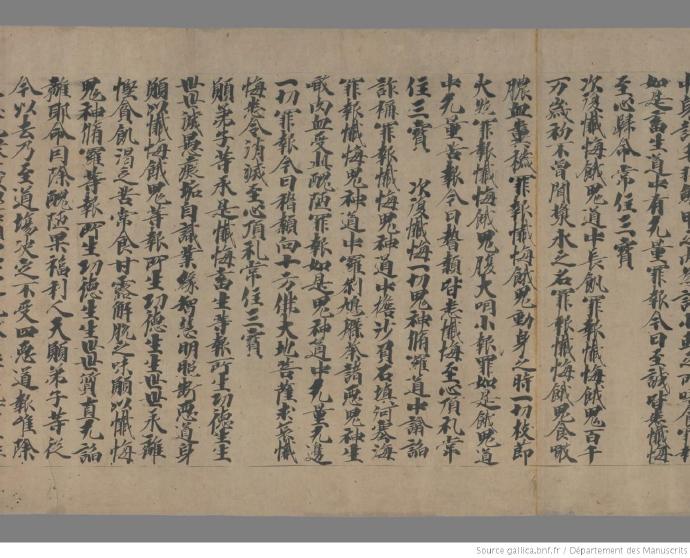 如是畜生道中有无量罪報今日至誠皆悉懺悔
至心歸命常住三寶
次復懺悔餓鬼道中長飢罪報懺悔餓鬼百千
万歲初不曾聞漿水之名罪報懺悔餓鬼食噉
膿血糞穢罪報懺悔餓鬼動身之時一切枝節
火然罪報懺悔餓鬼腹大咽小報罪如是餓鬼道
中无量苦報今日稽顙皆悉懺悔至心頂礼常
住三寶 次復懺悔一切鬼神脩羅道中諭諂
詐稱罪報懺悔鬼神道中擔沙負石填河塞海
罪報懺悔鬼神道中羅刹鳩槃荼諸惡鬼神生
噉肉血受此醜陋罪報如是鬼神道中无量无邊
一切罪報今日稽顙向十方佛大地菩薩求哀懺
悔悉令消滅至心頂礼常住三寶
願弟子等承是懺悔畜生等報所生功德生生
世世滅愚癡垢自識業緣智慧明照斷惡道身
願以懺悔餓鬼等報所生功德生生世世永離
慳貪飢渴之苦常食甘露解脫之味願以懺悔
鬼神脩羅等報所生功德生生世世質直无諂
離耶命因除醜陋果福利人天願弟子等從
今以去乃至道場決定不受四惡道報唯除